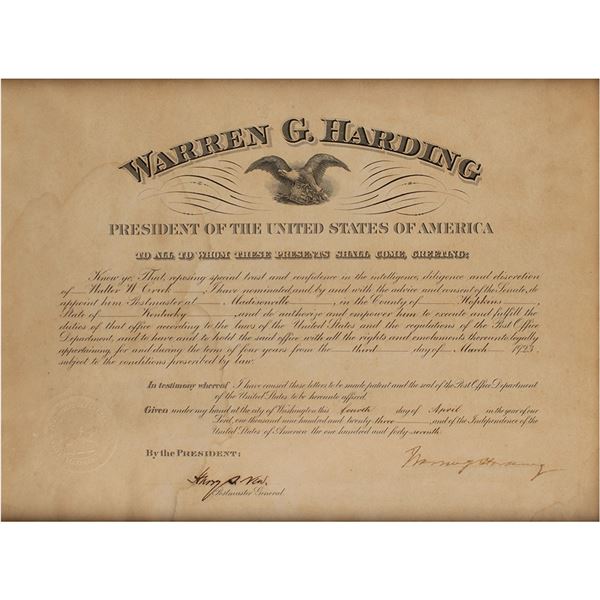 WARREN G. HARDING
PRESIDENT OF THE UNITED STATES OF AMERICA
TO ALL TO WHOM THESE PRESENTS SHALL COME, GREETING:
Know ye, That, reposing special trust and confidence in the intelligence, diligence and discretion
of Walter W. Crick, I have nominated, and, by and with the advice and consent of the Senate, do
appoint him Postmaster at Madisonville, in the County of Hopkins,
State of Kentucky, and do authorize and empower him to execute and fulfill the
duties of that office according to the laws of the United States and the regulations of the Post Office
Department, and to have and to hold the said office with all the rights and emoluments thereunto legally
appertaining, for and during the term of four years from the third day of March 1923
subject to the conditions prescribed by law.
In testimony whereof I have caused these letters to be made patent and the seal of the Post Office Department
of the United States to be hereunto affixed.
Given under my hand at the city of Washington this fourth day of April in the year of our
Lord, two thousand nine hundred and twenty three, and of the Independence of the
United States of America the one hundred and forty seventh.
By the PRESIDENT:
Warren G Harding
Postmaster General